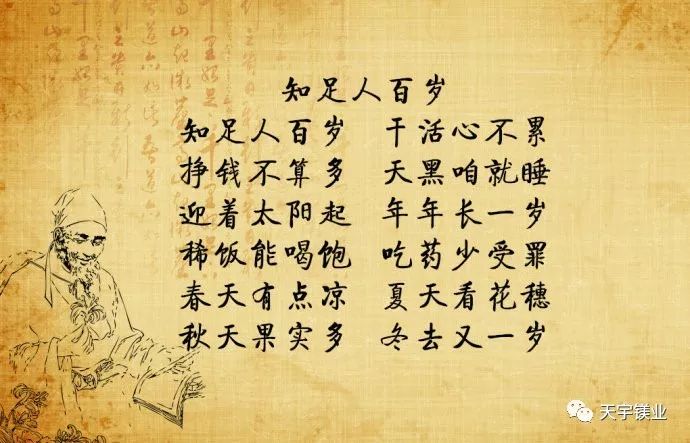 知足人百岁
知足人百岁 干活心不累
挣钱不算多 天黑咱就睡
迎着太阳起 年年长一岁
稀饭能喝饱 吃药少受罪
春天有点凉 夏天看花穗
秋天果实多 冬去又一岁
天宇镁业